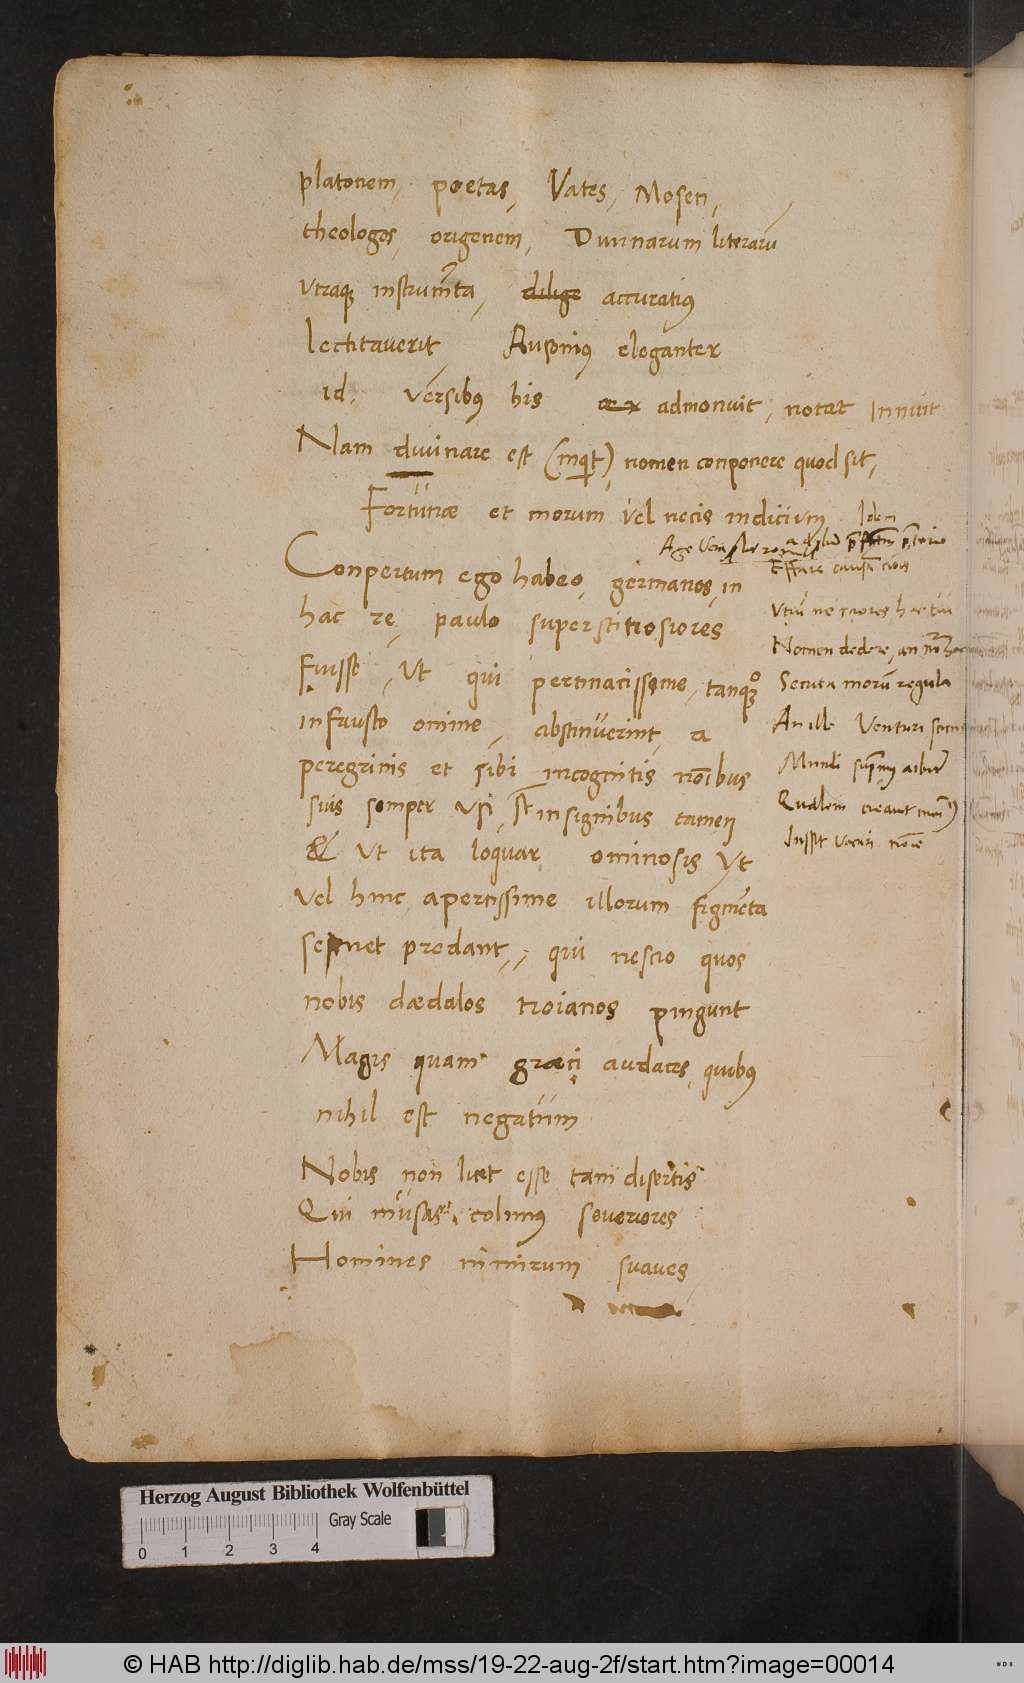 platonem, poetas, Vates, Mosen,
theologos, origenem, Diuinarum literarū
vtraqꝫ instrumēta, dilige accuratiꝰ
lectitaverit Ausoniꝰ eleganter
id, versibꝰ his ex admonuit, notat Innuit
Nam diuinare est (inqt) nomen conponere quod sit,
Fortunæ et morum vel necis indicium Idem
Conpertum ego habeo, germanos, in
hac re, paulo superstitiosiores
Fuisse, Ut qui pertinacissime, tanqꝫ
infausto omine, abstinuerint, a
peregrinis et sibi incognitis noībus
suis semper usi, insignibus tamen
& ut ita loquar ominosis Ut
vel hinc apertissime illorum figmēta
semet predant, qui nescio quos
nobis dædalos troianos pingunt
Magis quam græci audaces, quibꝰ
nihil est negatum
Nobis non licet esse tam disertis
Qui musas colimus seueriores
Homines nimirum suaves
Effare causā
Nomen dedere, an
Secuta morū regula
An ille Venturi
Mundi
Qualem creaut
Jussit vocari
Herzog August Bibliothek Wolfenbüttel
Gray Scale
0 1 2 3 4
© HAB http://diglib.hab.de/mss/19-22-aug-2f/start.htm?image=00014